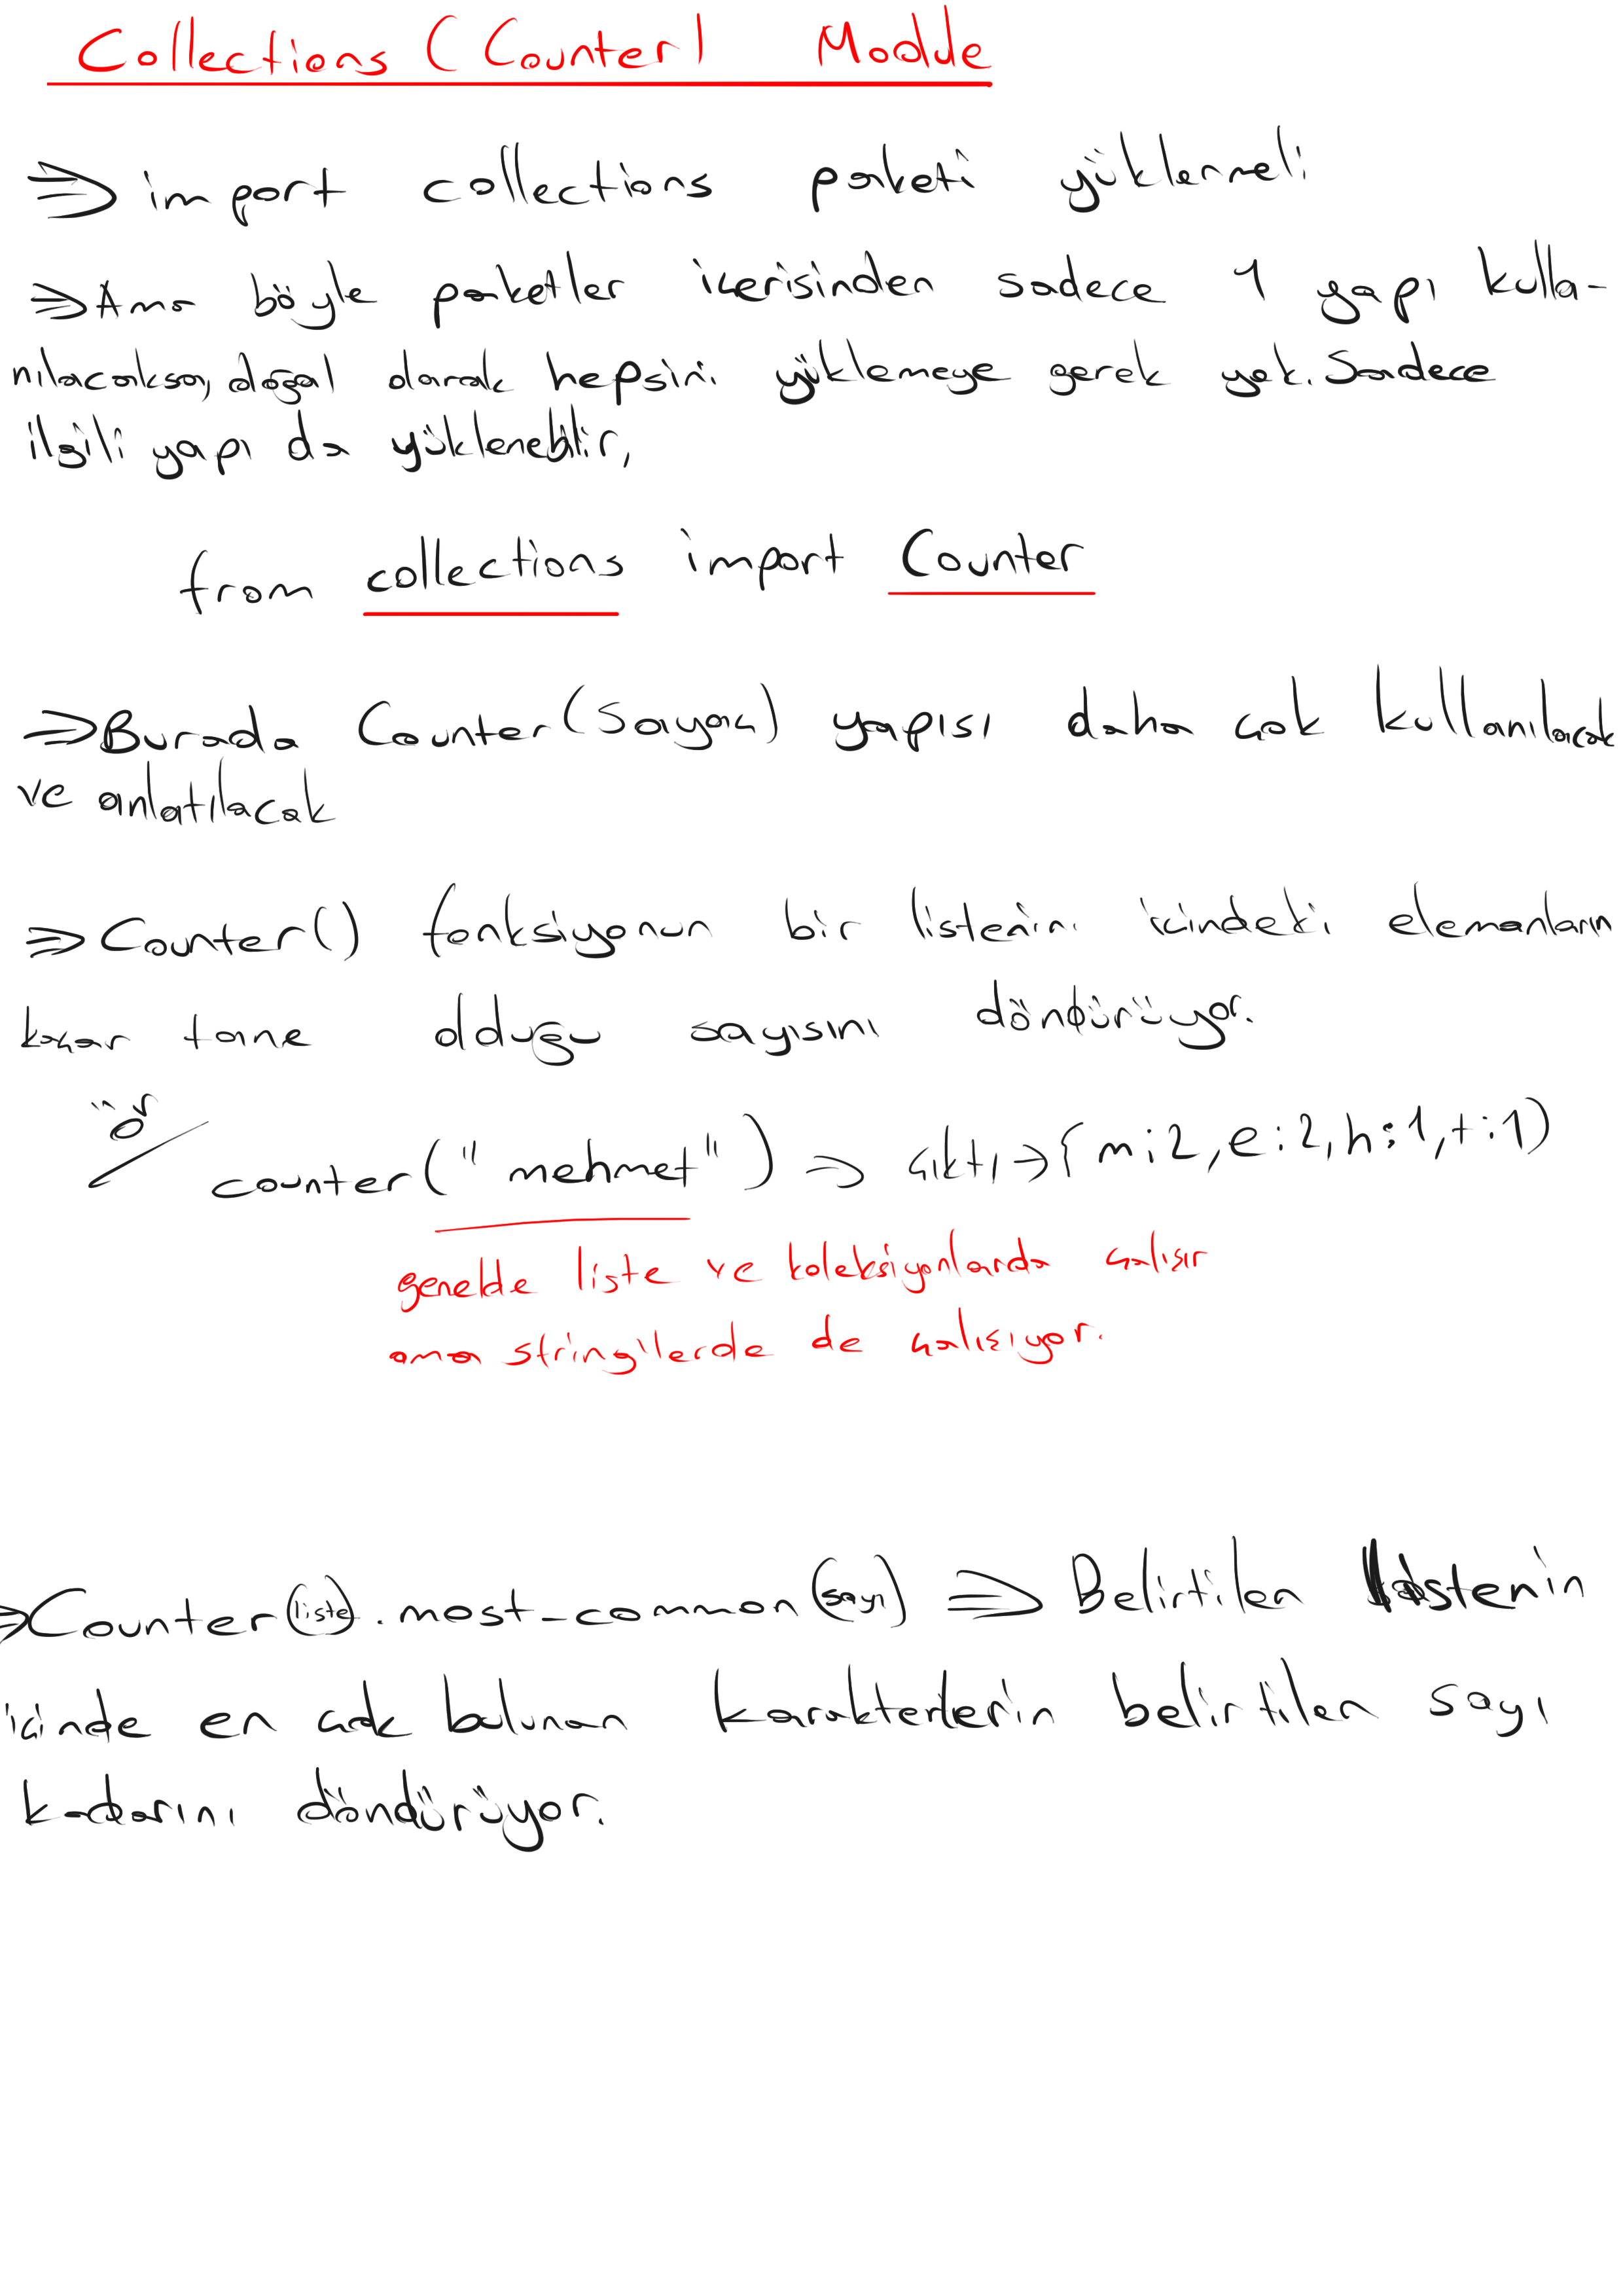 Collections (Counter) Modüle
⇒ import collections paketi yüklenmeli
⇒ Ama böyle paketler içerisinden sadece 1 yapı kulla-
nılacaksa, doğal olarak hepsini yüklemeye gerek yok. Sadece
ilgili yapı da yüklenebilir.
from collections import Counter
⇒ Burada Counter(Sayaç) yapısı daha çok kullanılacak
ve anlatılacak
⇒ Counter() fonksiyonun bir listenin içindeki elemanların
kaçar tane olduğu sayısını döndürüyor.
ör
counter("mehmet") ⇒ çıktı → {m:2, e:2, h:1, t:1)
genelde liste ve koleksiyonlarda çalışır
ama stringilerde de çalışıyor.
⇒ Counter(liste).most-common(sayı) ⇒ Belirtilen listenin
içinde en çok bulunan karakterlerin belirtilen sayı
kadarını döndürüyor.